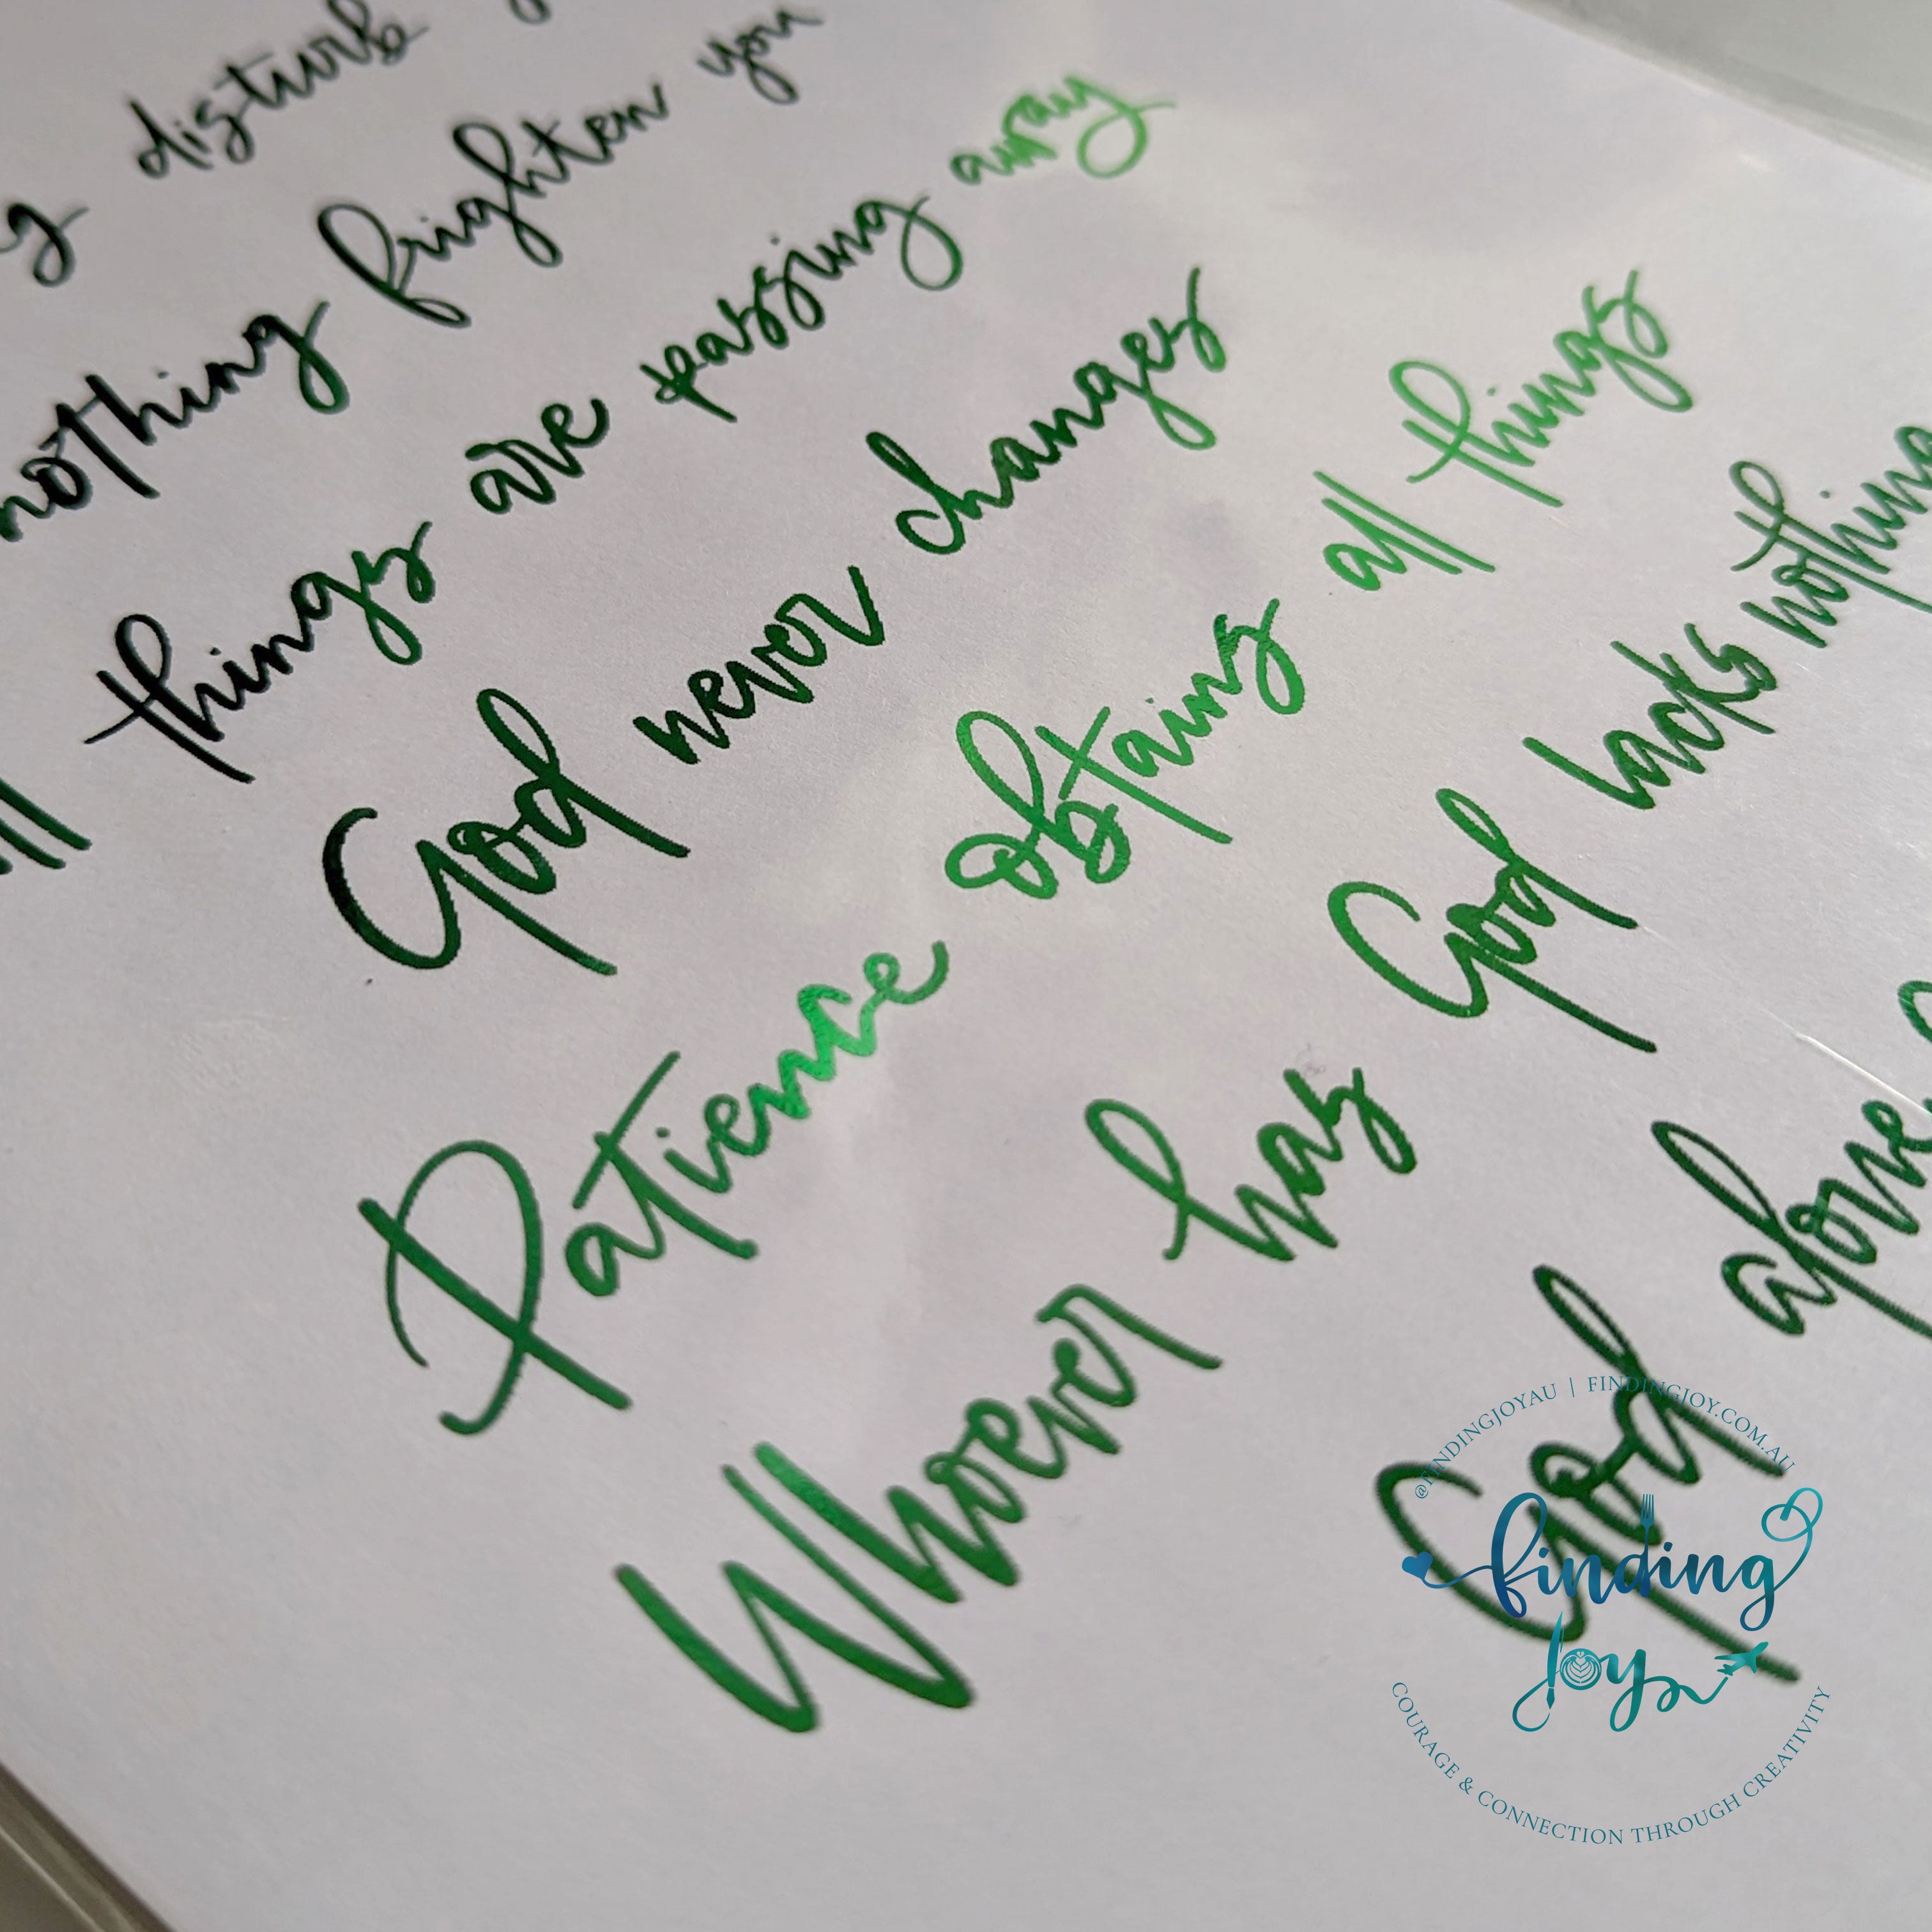 disturb
nothing frighten you
things are passing away
God never changes
Patience obtains all things
Whoever has God lacks nothing
God alone
@FINDINGJOYAU | FINDINGJOY.COM.AU
finding
joy
COURAGE & CONNECTION THROUGH CREATIVITY